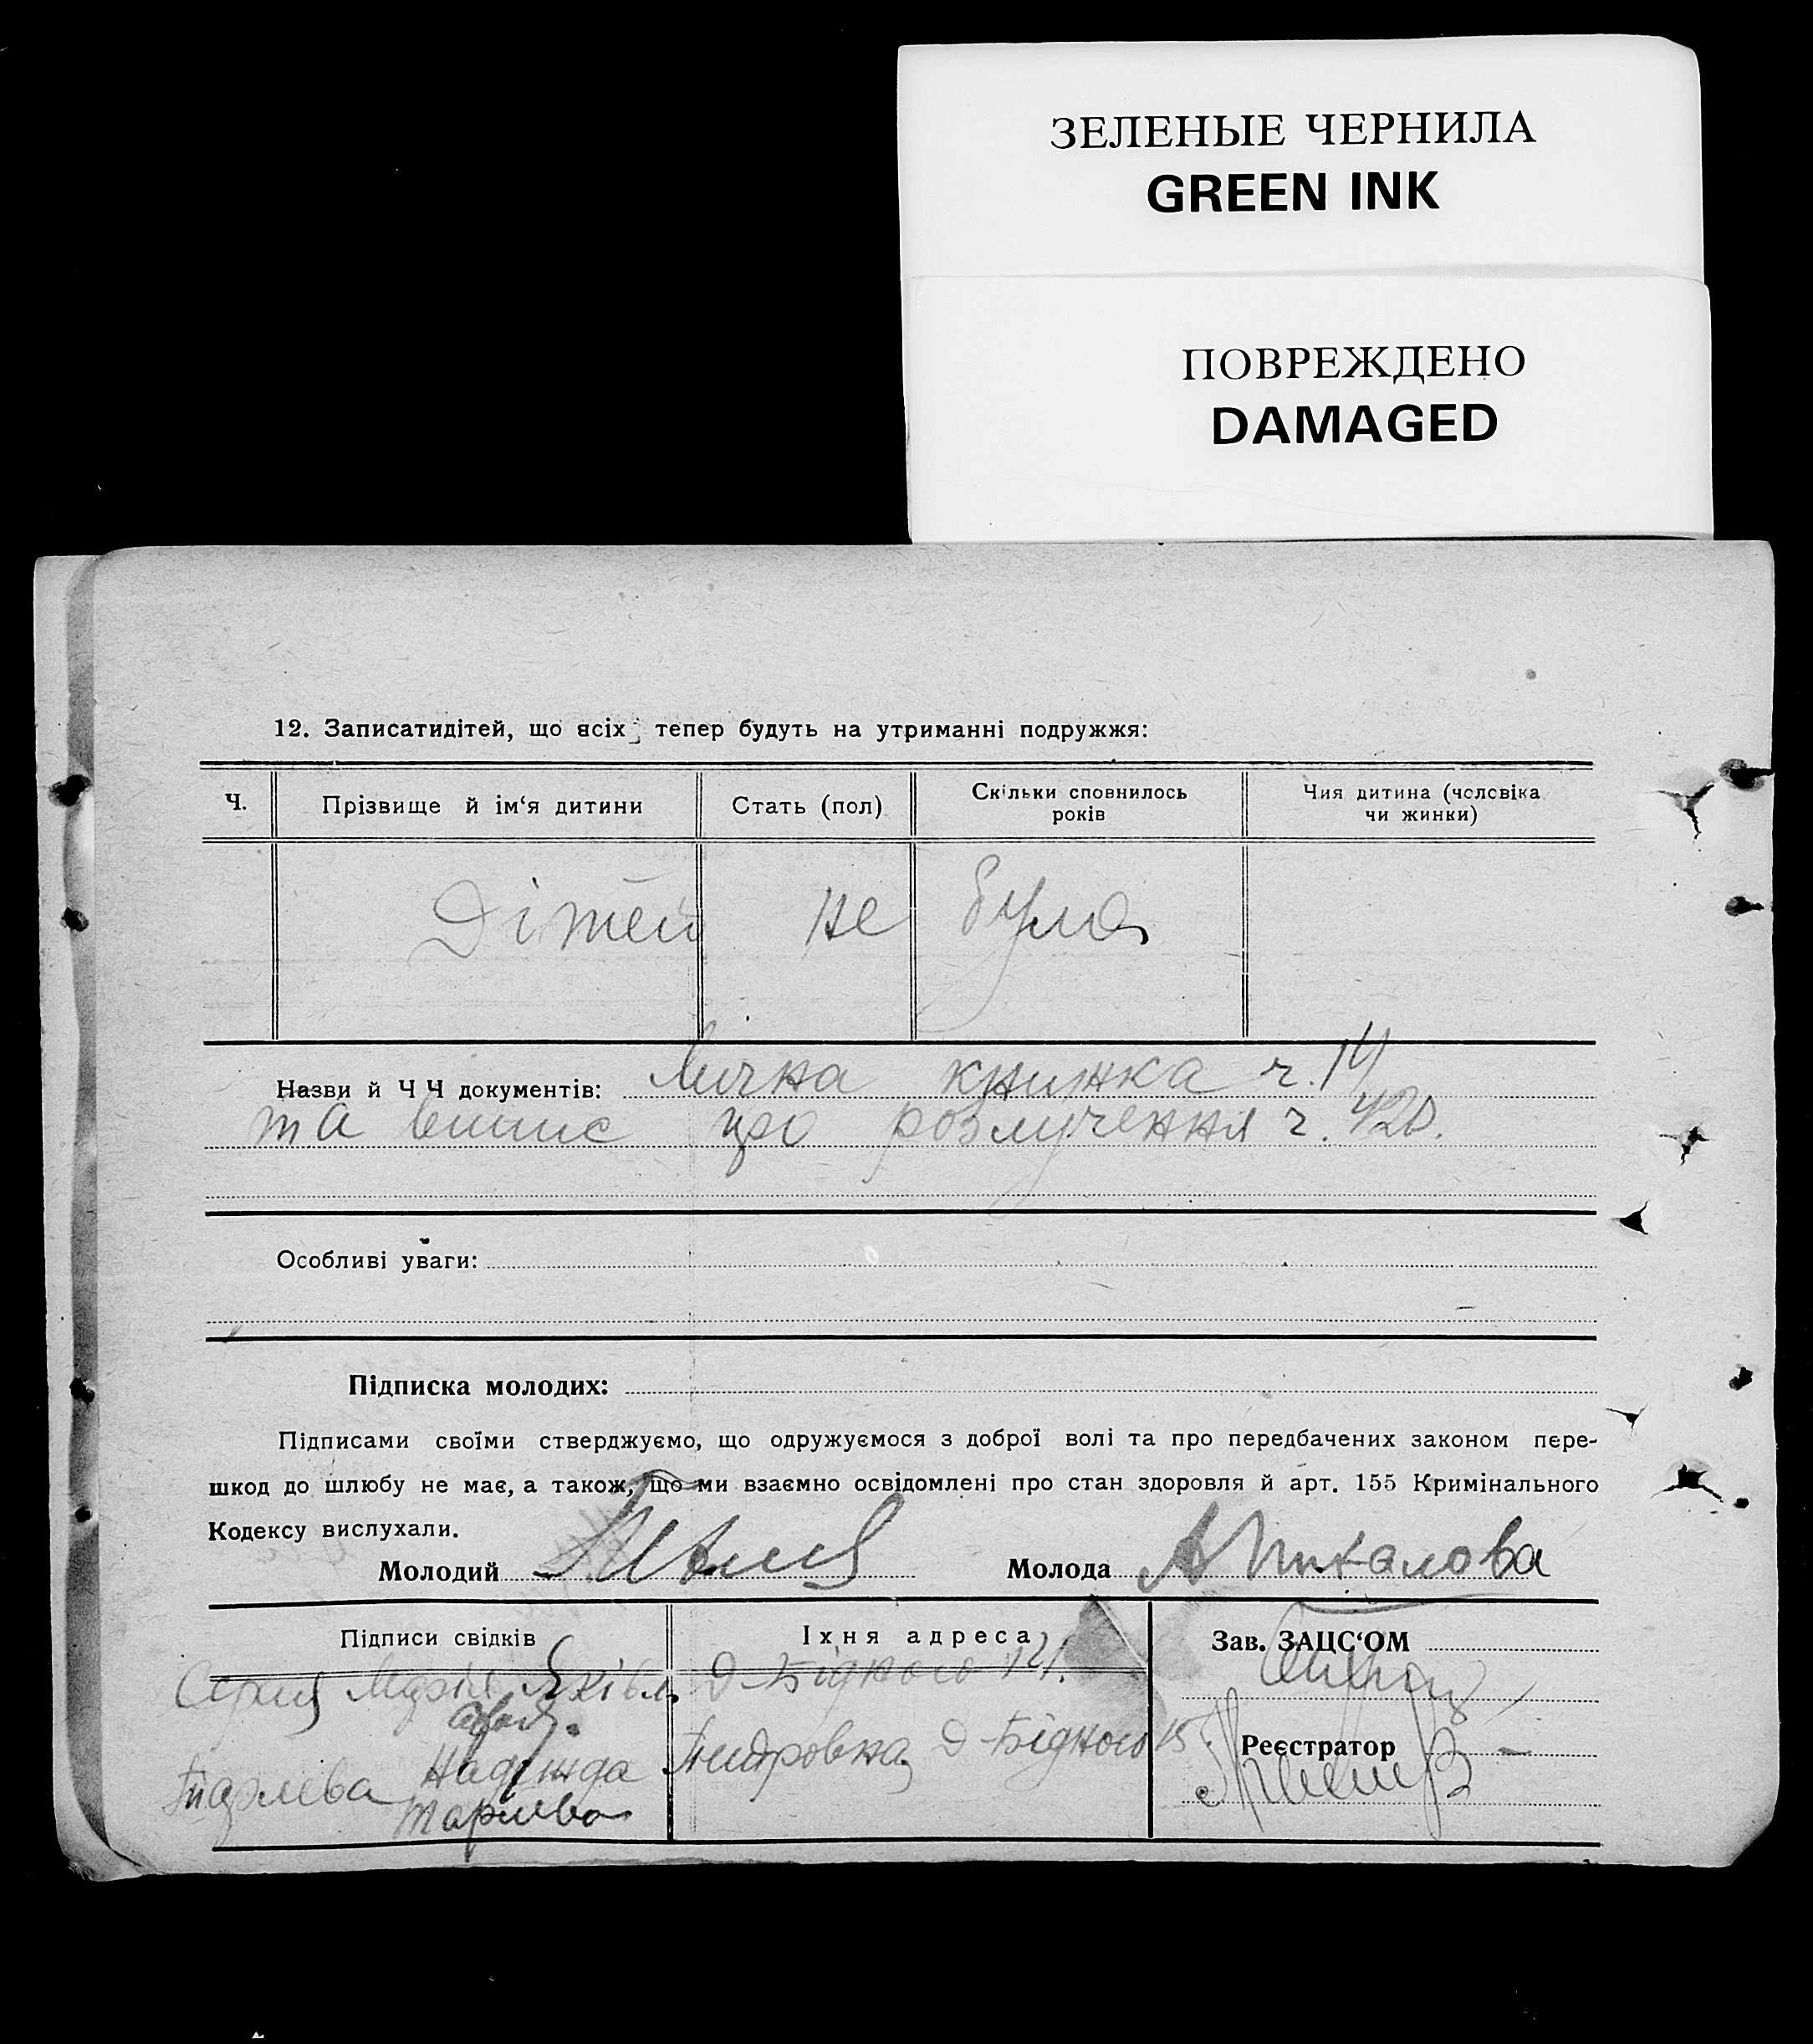 ЗЕЛЕНЫЕ ЧЕРНИЛА
GREEN INK
ПОВРЕЖДЕНО
DAMAGED
12. Записатидітей, що всіх тепер будуть на утриманні подружжя:
Ч.
Прізвище й ім‘я дитини
Стать (пол)
Скільки сповнилось
років
Чия дитина (чоловіка
чи жинки)
Дітей не було
Назви й Ч Ч документів: книжка ч. 14
та випис про розлучення ч. 420.
Особливі уваги:
Підписка молодих:
Підписами своїми стверджуємо, що одружуємося з доброї волі та про передбачених законом пере-
шкод до шлюбу не має, а також, що ми взаємно освідомлені про стан здоровля й арт. 155 Кримінального
Кодексу вислухали.
Молодий
Молода
Підписи свідків
Їхня адреса
Зав. ЗАЦС‘ОМ
Марія Яківл.
Д-Бідного 121.
Надежда
Д-Бідного 15.
Реєстратор